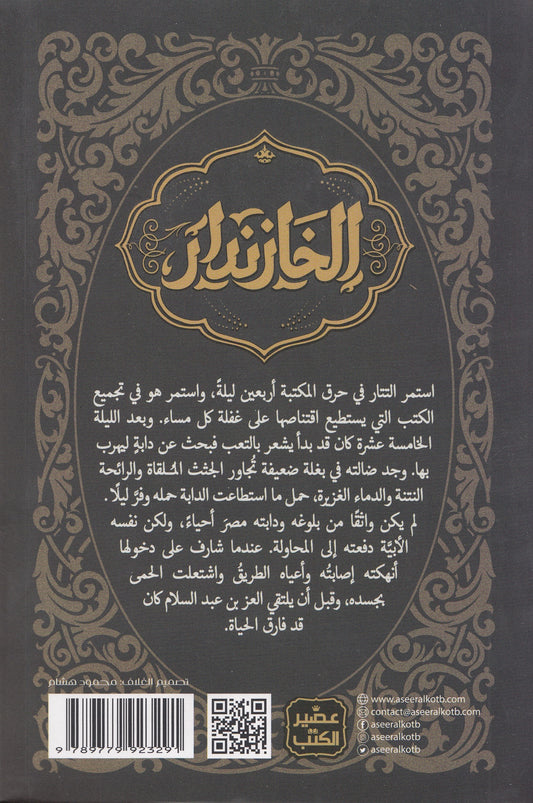 الخازندار
استمر التتار في حرق المكتبة أربعين ليلةً، واستمر هو في تجميع
الكتب التي يستطيع اقتناصها على غفلة كل مساء. وبعد الليلة
الخامسة عشرة كان قد بدأ يشعر بالتعب فبحث عن دابةٍ ليهرب
بها. وجد ضالته في بغلة ضعيفة تُجاور الجثث المُلقاة والرائحة
النتنة والدماء الغزيرة، حمل ما استطاعت الدابة حمله وفرَّ ليلًا.
لم يكن واثقًا من بلوغه ودابته مصرَ أحياءً، ولكن نفسه
الأبيَّة دفعته إلى المحاولة. عندما شارف على دخولها
أنهكته إصابتُه وأعياه الطريقُ واشتعلت الحمى
بجسده، وقبل أن يلتقي العز بن عبد السلام كان
قد فارق الحياة.
تصميم الغلاف: محمود هشام
9 789779 923291
عصير
الكتب
www.aseeralkotb.com
contact@aseeralkotb.com
aseeralkotb
aseeralkotb
aseeralkotb